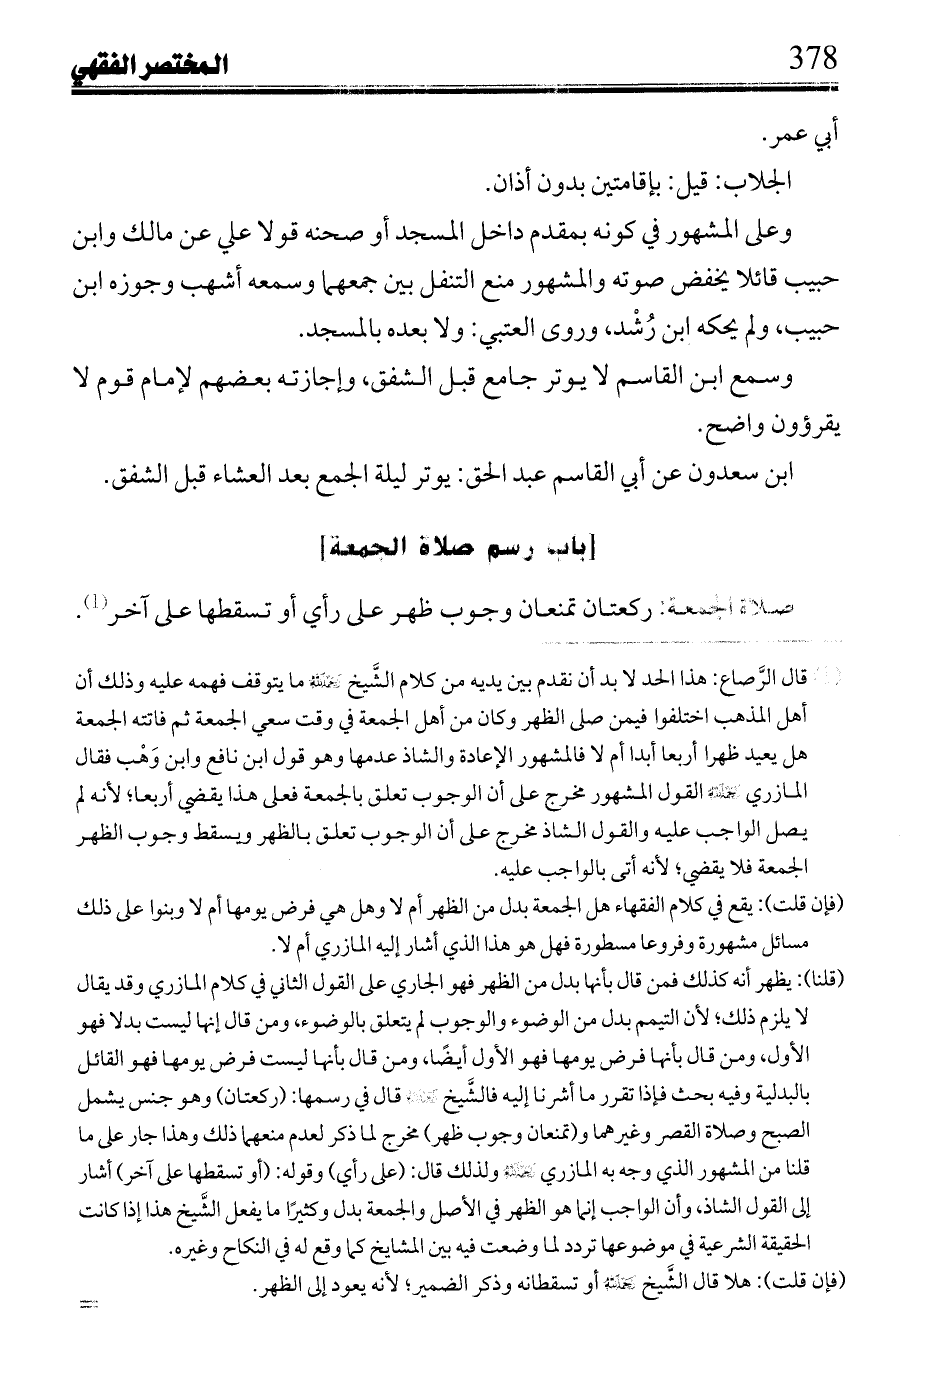 378
المختصر الفقهي
أبي عمر.
الجلاب: قيل: بإقامتين بدون أذان.
وعلى المشهور في كونه بمقدم داخل المسجد أو صحنه قولا علي عن مالك وابن
حبيب قائلا يخفض صوته والمشهور منع التنفل بين جمعهما وسمعه أشهب وجوزه ابن
حبيب، ولم يحكه ابن رُشْد، وروى العتبي: ولا بعده بالمسجد.
وسمع ابن القاسم لا يوتر جامع قبل الشفق، وإجازته بعضهم لإمام قوم لا
يقرؤون واضح.
ابن سعدون عن أبي القاسم عبد الحق: يوتر ليلة الجمع بعد العشاء قبل الشفق.
[باب رسم صلاة الجمعة]
صلاة الجمعة: ركعتان تمنعان وجوب ظهر على رأي أو تسقطها على آخر(1).
(1) قال الرَّصاع: هذا الحد لا بد أن نقدم بين يديه من كلام الشَّيخ رحمه الله ما يتوقف فهمه عليه وذلك أن
أهل المذهب اختلفوا فيمن صلى الظهر وكان من أهل الجمعة في وقت سعي الجمعة ثم فاتته الجمعة
هل يعيد ظهرا أربعا أبدا أم لا فالمشهور الإعادة والشاذ عدمها وهو قول ابن نافع وابن وَهْب فقال
المازري رحمه الله القول المشهور مخرج على أن الوجوب تعلق بالجمعة فعلى هذا يقضي أربعا؛ لأنه لم
يصل الواجب عليه والقول الشاذ مخرج على أن الوجوب تعلق بالظهر ويسقط وجوب الظهر
الجمعة فلا يقضي؛ لأنه أتى بالواجب عليه.
(فإن قلت): يقع في كلام الفقهاء هل الجمعة بدل من الظهر أم لا وهل هي فرض يومها أم لا وبنوا على ذلك
مسائل مشهورة وفروعا مسطورة فهل هو هذا الذي أشار إليه المازري أم لا.
(قلنا): يظهر أنه كذلك فمن قال بأنها بدل من الظهر فهو الجاري على القول الثاني في كلام المازري وقد يقال
لا يلزم ذلك؛ لأن التيمم بدل من الوضوء والوجوب لم يتعلق بالوضوء، ومن قال إنها ليست بدلا فهو
الأول، ومن قال بأنها فرض يومها فهو الأول أيضًا، ومن قال بأنها ليست فرض يومها فهو القائل
بالبدلية وفيه بحث فإذا تقرر ما أشرنا إليه فالشَّيخ رحمه الله قال في رسمها: (ركعتان) وهو جنس يشمل
الصبح وصلاة القصر وغيرهما و(تمنعان وجوب ظهر) مخرج لما ذكر لعدم منعهما ذلك وهذا جار على ما
قلنا من المشهور الذي وجه به المازري رحمه الله ولذلك قال: (على رأي) وقوله: (أو تسقطها على آخر) أشار
إلى القول الشاذ، وأن الواجب إنما هو الظهر في الأصل والجمعة بدل وكثيرًا ما يفعل الشَّيخ هذا إذا كانت
الحقيقة الشرعية في موضوعها تردد لما وضعت فيه بين المشايخ كما وقع له في النكاح وغيره.
(فإن قلت): هلا قال الشَّيخ رحمه الله أو تسقطانه وذكر الضمير؛ لأنه يعود إلى الظهر.
=